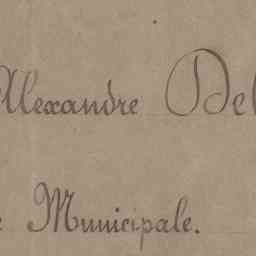 Alexandre Del
e Municipale.